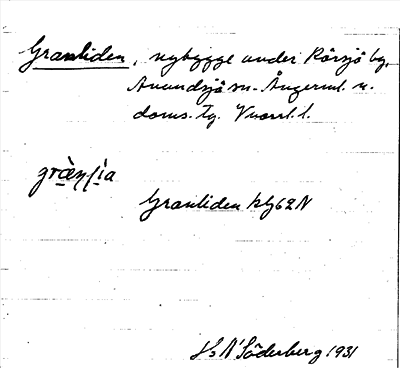 Granliden, nybygge under Rörsjö by,
Anundsjö sn. Ångerml. n.
doms. tg. Vnorrl. l.
græ̀nlìa
Granliden kbg 62 N
Hs N Söderberg 1931